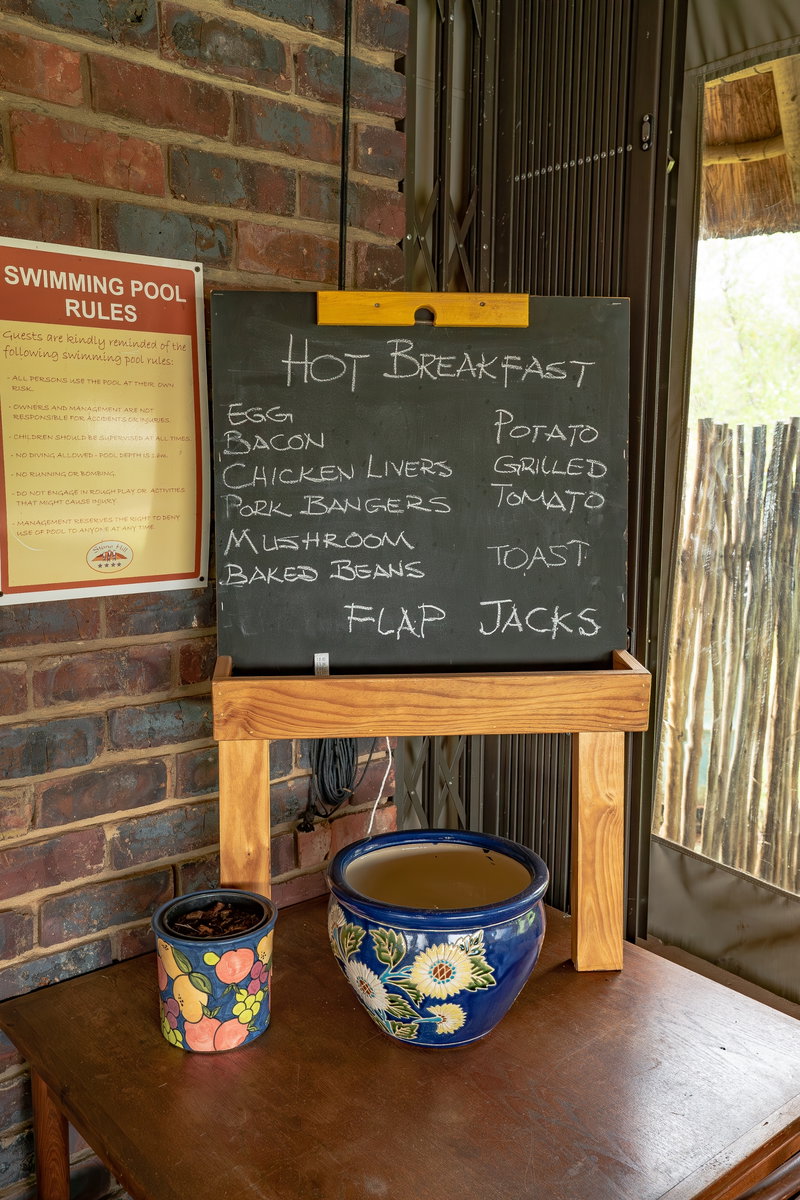 SWIMMING POOL
RULES
Guests are kindly reminded of the
following swimming pool rules:
- ALL PERSONS USE THE POOL AT THEIR OWN
RISK.
- OWNERS AND MANAGEMENT ARE NOT
RESPONSIBLE FOR ACCIDENTS OR INJURIES.
- CHILDREN SHOULD BE SUPERVISED AT ALL TIMES.
- NO DIVING ALLOWED - POOL DEPTH IS
- NO RUNNING OR BOMBING.
- DO NOT ENGAGE IN ROUGH PLAY OR ACTIVITIES
THAT MIGHT CAUSE INJURY.
- MANAGEMENT RESERVES THE RIGHT TO DENY
USE OF POOL TO ANYONE AT ANY TIME
HOT BREAKFAST
EGG
BACON
CHICKEN LIVERS
PORK BANGERS
MUSHROOM
BAKED BEANS
POTATO
GRILLED
TOMATO
TOAST
FLAP JACKS